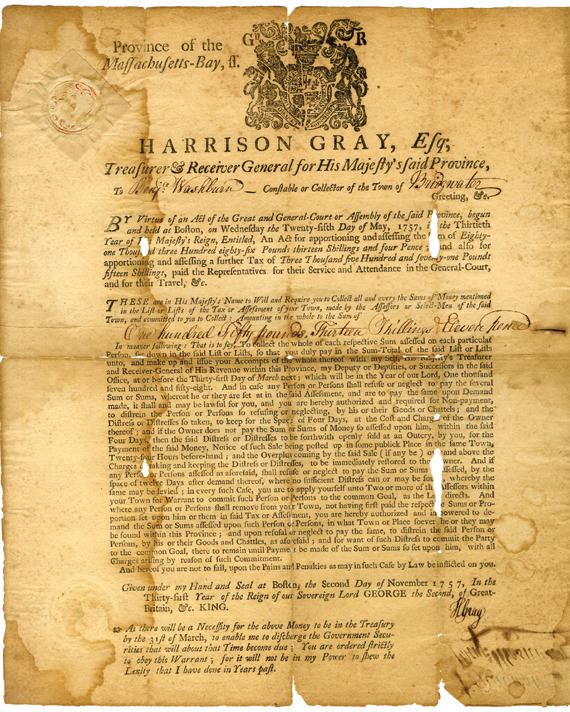 Province of the
Massachusetts-Bay, ss.
G R
HARRISON GRAY, Esq;
Treasurer & Receiver General for His Majesty's said Province,
To Benjᵃ Washburn — Constable or Collector of the Town of Bridgwater
Greeting, &c.
BY Virtue of an Act of the Great and General-Court or Assembly of the said Province, begun
and held at Boston, on Wednesday the Twenty-fifth Day of May, 1757, in the Thirtieth
Year of Majesty's Reign, Entitled, An Act for apportioning and assessing the Sum of Eighty-
one Thousand three Hundred eighty-six Pounds thirteen Shillings and four Pence and also for
apportioning and assessing a further Tax of Three Thousand five Hundred and seventy-one Pounds
fifteen Shillings, paid the Representatives for their Service and Attendance in the General-Court,
and for their Travel, &c.
THESE are in His Majesty's Name to Will and Require you to Collect all and every the Sums of Money mentioned
in the List or Lists of the Tax or Assessment of your Town, made by the Assessors or Select-Men of the said
Town, and committed to you to Collect Amounting in the whole to the Sum of
One hundred Fifty pounds Thirteen Shillings & Eleven pence
In manner following: That is to say, To collect the whole of each respective Sum assessed on each particular
Person, set down in the said List or Lists, so that you duly pay in the Sum-Total of the said List or Lists
unto, and make up and issue your Accompts of the whole thereof with my Self, His Majesty's Treasurer
and Receiver-General of His Revenue within this Province, my Deputy or Deputies, or Successors in the said
Office, at or before the Thirty-first Day of March next; which will be in the Year of our Lord, One thousand
seven hundred and fifty-eight. And in case any Person or Persons shall refuse or neglect to pay the several
Sum or Sums, whereat he or they are set at in the said Assessment, and are to pay the same upon Demand
made, it shall and may be lawful for you, and you are hereby authorized and required for Non-payment,
to distrain the Person or Persons so refusing or neglecting, by his or their Goods or Chattels; and the
Distress or Distresses so taken, to keep for the Space of Four Days, at the Cost and Charge of the Owner
thereof; and if the Owner does not pay the Sum or Sums of Money so assessed upon him, within the said
Four Days, then the said Distress or Distresses to be forthwith openly sold at an Outcry, by you, for the
Payment of the said Money, Notice of such Sale being posted up in some publick Place in the same Town,
Twenty-four Hours beforehand; and the Overplus coming by the said Sale (if any be) over and above the
Charges of taking and keeping the Distress or Distresses, to be immediately restored to the Owner. And if
any Person or Persons assessed as aforesaid, shall refuse or neglect to pay the Sum or Sums so assessed, by the
space of twelve Days after demand thereof, where no sufficient Distress can or may be found, whereby the
same may be levied; in every such Case, you are to apply yourself unto Two or more of the Assessors within
your Town for Warrant to commit such Person or Persons to the common Goal, as the Law directs. And
where any Person or Persons shall remove from your Town, not having first paid the respective Sums or Pro-
portion set upon him or them in said Tax or Assessment, you are hereby authorized and impowered to de-
mand the Sum or Sums assessed upon such Person or Persons, in what Town or Place soever he or they may
be found within this Province; and upon refusal or neglect to pay the same, to distrain the said Person or
Persons, by his or their Goods and Chattles, as aforesaid; and for want of such Distress to commit the Party
to the common Goal, there to remain until Payment be made of the Sum or Sums so set upon him, with all
Charges arising by reason of such Commitment.
And hereof you are not to fail, upon the Pains and Penalties as may in such Case by Law be inflicted on you.
Given under my Hand and Seal at Boston, the Second Day of November 1757, In the
Thirty-first Year of the Reign of our Sovereign Lord GEORGE the Second, of Great-
Britain, &c. KING.
HGray
☞ As there will be a Necessity for the above Money to be in the Treasury
by the 31st of March, to enable me to discharge the Government Secu-
rities that will about that Time become due; You are ordered strictly
to obey this Warrant; for it will not be in my Power to shew the
Lenity that I have done in Years past.